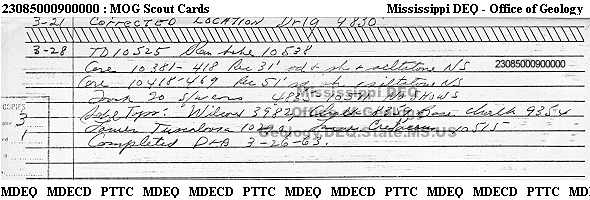 23085000900000 : MOG Scout Cards Mississippi DEQ - Office of Geology
3-21 CORRECTED LOCATION Drlg 4830
3-28 TD 10525 10538
Core 10381-418 Rec 31' sd + sh + siltstone N/S
Core 10418-469 Rec 51' sd sh siltstone N/S
23085000900000
Took 20 s/w cores 4825- NO SHOWS
Mississippi DEQ
COPIES
3
Tops: Wilcox 3982, Chalk 8350 Base Chalk 9354
Office of Geology
Lower Tuscaloosa Lower Cretaceous 10515
Geology.DEQ.State.MS.US
1
Completed D+A 3-26-63.
MDEQ MDECD PTTC MDEQ MDECD PTTC MDEQ MDECD PTTC MDEQ MDECD PTTC